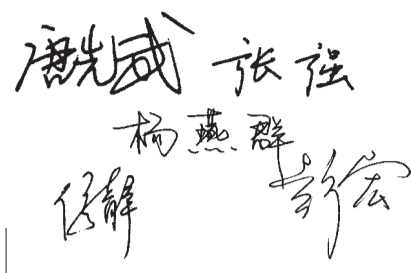 唐先威 张强
杨燕群
伍静 彭宏